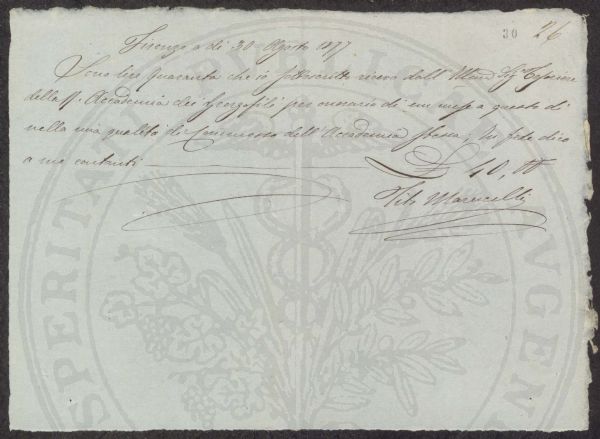 30 26
Firenze a dì 30 Agosto 1877
Sono lire quaranta che io sottoscritto ricevo dall' Illmo Sigr Tesoriere
della R. Accademia dei Georgofili per onorario di un mese a questo dì
nella mia qualità di Commesso dell' Accademia stessa; In fede dico
a me contanti
£ 40,00
Tito Marucelli